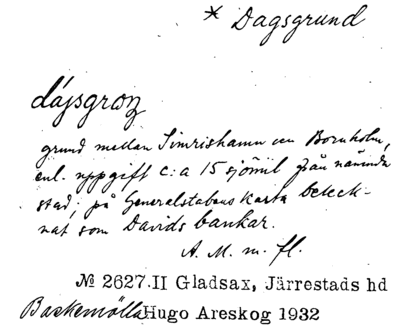 * Dagsgrund
dájsgroŋ
grund mellan Simrishamn och Bornholm,
enl. uppgift c:a 15 sjömil från nämnda
stad; på Generalstabens karta beteck-
nat som Davids bankar.
A. M. m. fl.
№ 2627.II Gladsax, Järrestads hd
Baskemölla Hugo Areskog 1932